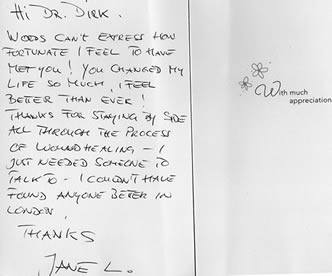 Hi DR. DIRK.
WORDS CAN'T EXPRESS HOW
FORTUNATE I FEEL TO HAVE
MET YOU! YOU CHANGED MY
LIFE SO MUCH, I FEEL
BETTER THAN EVER!
THANKS FOR STAYING BY SIDE
ALL THROUGH THE PROCESS
OF WOUND HEALING - I
JUST NEEDED SOMEONE TO
TALK TO - I COULDN'T HAVE
FOUND ANYONE BETER IN
LONDON,
THANKS
JANE L.
With much
appreciation